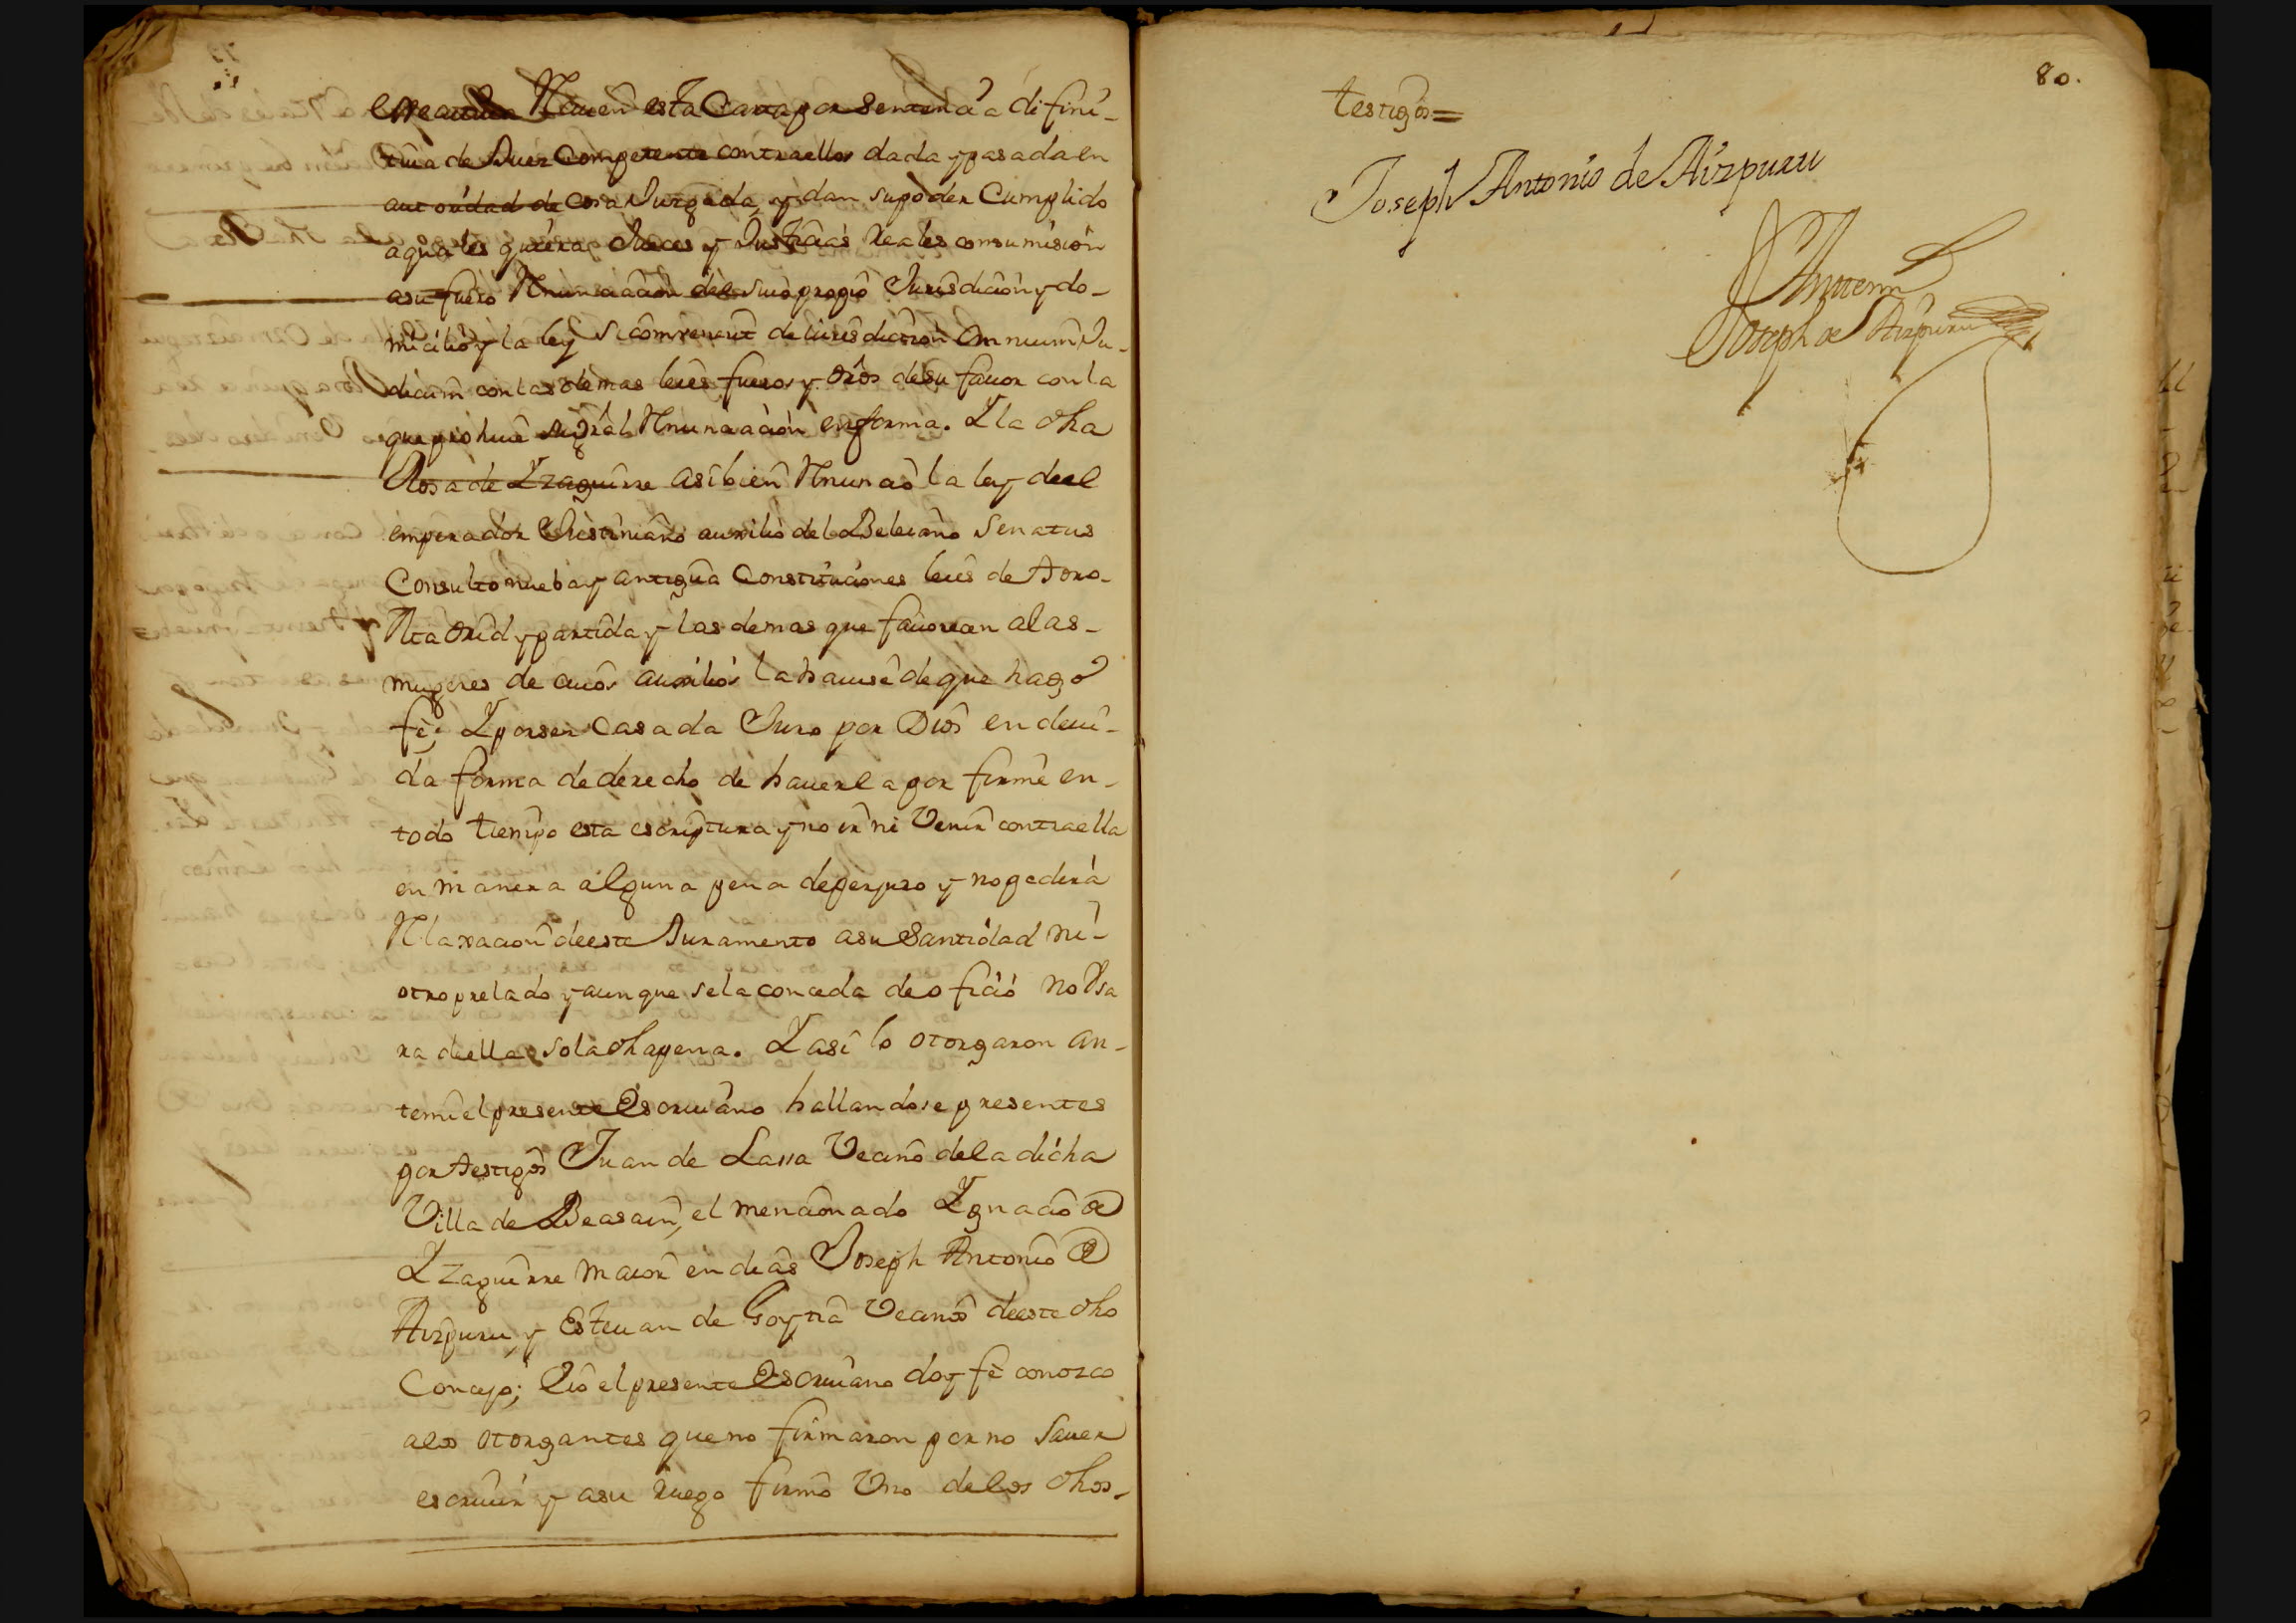 Reciuen esta Carta por Sentencia difini-
tiua de Juez Competente contra ellos dada y pasada en
autoridad de cosa Juzgada, y dan su poder Cumplido
a quales quiera Jueces y Justicias Reales con sumision
a su fuero Rnunciacion del suio propio Jurisdicion y do-
micilio y la ley Si combenerit de iurisdictione Omnium Ju-
dicum con las demas leies fueros y dros de su fauor con la
que prohiue su gral Rnunciacion en forma. Y la dha
Rosa de Yzaguirre asi bien Rnuncio la ley de el
emperador Justiniano auxilio del Beleiano Senatus
Consulto nueba y antigua Constituciones leies de Toro-
Madrid y partida y las demas que fauorecen a las-
mugeres de cuios auxilios la hauise de que hago
fè; Y por ser Casada Juro por Dios en deui-
da forma de derecho de hauerla por firme en-
todo tiempo esta escriptura y no ir ni Venir contra ella
en manera alguna pena de perjuro y no pedirà
Rlaxacion de este Juramento a su Santidad ni-
otro prelado y aunque se la conceda de oficio no Vsa
ra de ella so la dha pena. Y asi lo otorgaron an-
te mi el presente Escriuano hallandose presentes
por testigos Juan de Lasa Vecino de la dicha
Villa de Beasain, el mencionado Ygnacio de
Yzaguirre maior en dias Joseph Antonio de
Aizpuru, y Esteuan de Goytia Vecinos de este dho
Concejo; Eio el presente Escriuano doy fè conozco
a los otorgantes que no firmaron por no Sauer
escriuir y a su ruego firmò Vno de los dhos-
80.
testigos=
Joseph Antonio de Aizpuru
Ante mi
Joseph de Aizpuru